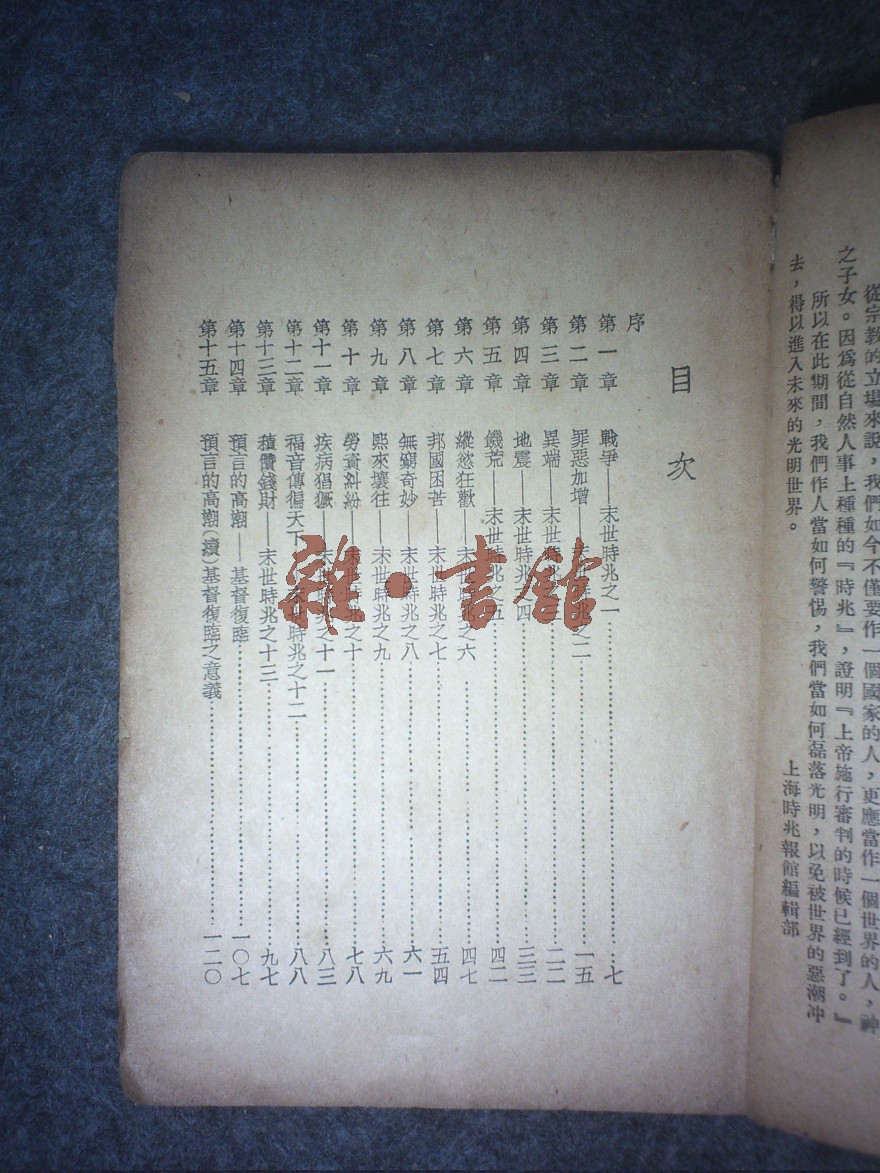 從宗教的立場來說，我們如今不僅要作一個國家的人，更應當作一個世界的人，神
之子女。因爲從自然人事上種種的『時兆』，證明『上帝施行審判的時候已經到了。』
所以在此期間，我們作人當如何警惕，我們當如何磊落光明，以免被世界的惡潮冲
去，得以進入未來的光明世界。
上海時兆報館編輯部
目次
序
第一章 戰爭——末世時兆之一……七
第二章 罪惡加增——末世時兆之二……一五
第三章 異端——末世時兆之三……二二
第四章 地震——末世時兆之四……三三
第五章 饑荒——末世時兆之五……四二
第六章 縱慾狂歡——末世時兆之六……四七
第七章 邦國困苦——末世時兆之七……五四
第八章 無窮奇妙——末世時兆之八……六一
第九章 熙來攘往——末世時兆之九……六九
第十章 勞資糾紛——末世時兆之十……七八
第十一章 疾病猖獗——末世時兆之十一……八三
第十二章 福音傳徧天下——末世時兆之十二……八八
第十三章 積儹錢財——末世時兆之十三……九七
第十四章 預言的高潮——基督復臨……一〇七
第十五章 預言的高潮（續）基督復臨之意義……一二〇
雜·書館